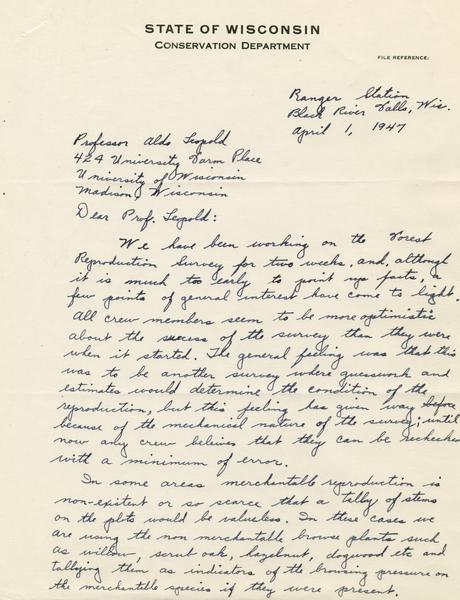 STATE OF WISCONSIN
CONSERVATION DEPARTMENT
FILE REFERENCE:
Ranger Station
Black River Falls, Wis.
April 1, 1947
Professor Aldo Leopold
424 University Farm Place
University of Wisconsin
Madison, Wisconsin
Dear Prof. Leopold:
We have been working on the Forest
Reproduction Survey for two weeks, and, although
it is much too early to point up facts, a
few points of general interest have come to light.
All crew members seem to be more optimistic
about the success of the survey than they were
when it started. The general feeling was that this
was to be another survey where guesswork and
estimates would determine the condition of the
reproduction, but this feeling has given way before
because of the mechanical nature of the survey; until
now any crew believes that they can be rechecked
with a minimum of error.
In some areas merchantable reproduction is
non-existent or so scarce that a tally of stems
on the plots would be valueless. In these cases we
are using the non merchantable browse plants such
as willow, scrub oak, hazelnut, dogwood etc and
tallying them as indicators of the browsing pressure on
the merchantable species if they were present.